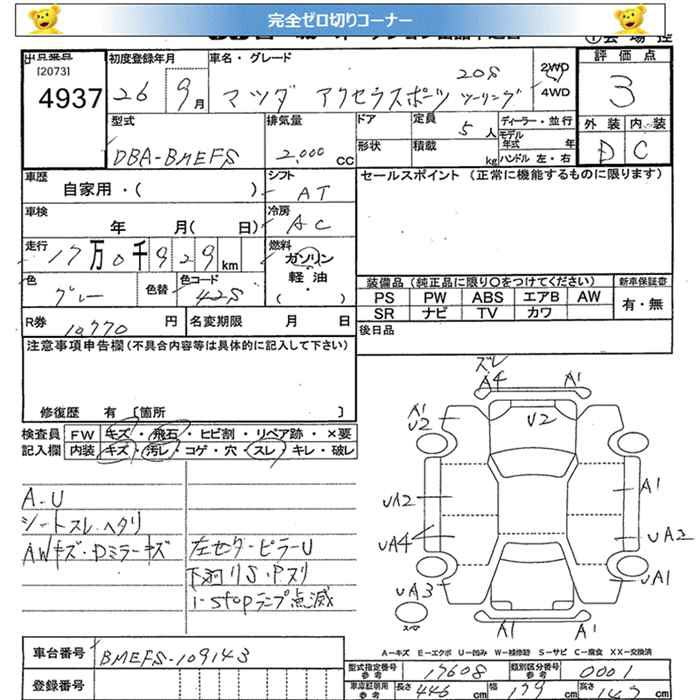 完全ゼロ切りコーナー
出品番号
[2073]
4937
初度登録年月
26 9月
車名・グレード
マツダ アクセラスポーツ 20S ツーリング
2WD
4WD
評価点
3
外装 内装
D C
型式
DBA-BMEFS
排気量
2,000 CC
ドア
形状
定員 5人
積載 kg
ディーラー・並行
モデル年式 年
ハンドル 左・右
車歴
自家用・( )
シフト
AT
セールスポイント (正常に機能するものに限ります)
車検
年 月( 日)
冷房
AC
走行
17万0千929km
燃料
ガソリン
軽油
( )
色
グレー
色替
色コード
42S
装備品 (純正品に限り○をつけてください)
新車保証書
PS PW ABS エアB AW
有・無
SR ナビ TV カワ
R券 10770円
名変期限 月 日
後日品
注意事項申告欄(不具合内容等は具体的に記入して下さい)
修復歴 有 [箇所 ]
検査員 FW キズ・飛石・ヒビ割・リペア跡・×要
記入欄 内装 キズ・汚レ・コゲ・穴・スレ・キレ・破レ
A・U
シートスレ・ヘタリ
AWキズ・Dミラーキズ
左センターピラーU
下廻りS・Pスリ
i-stopランプ点滅
ズレ
A4 A1
A1
U2
U2
UA2
A1
UA4
UA2
UA3
UA1
A1 A1
A-キズ E-エクボ U-凹み W-補修跡 S-サビ C-腐食 XX-交換済
車台番号
BMEFS-109143
登録番号
型式指定番号 参考 17608
類別区分番号 参考 0001
車庫証明用 参考 長さ 446 cm 幅 179 cm 高さ 147 cm